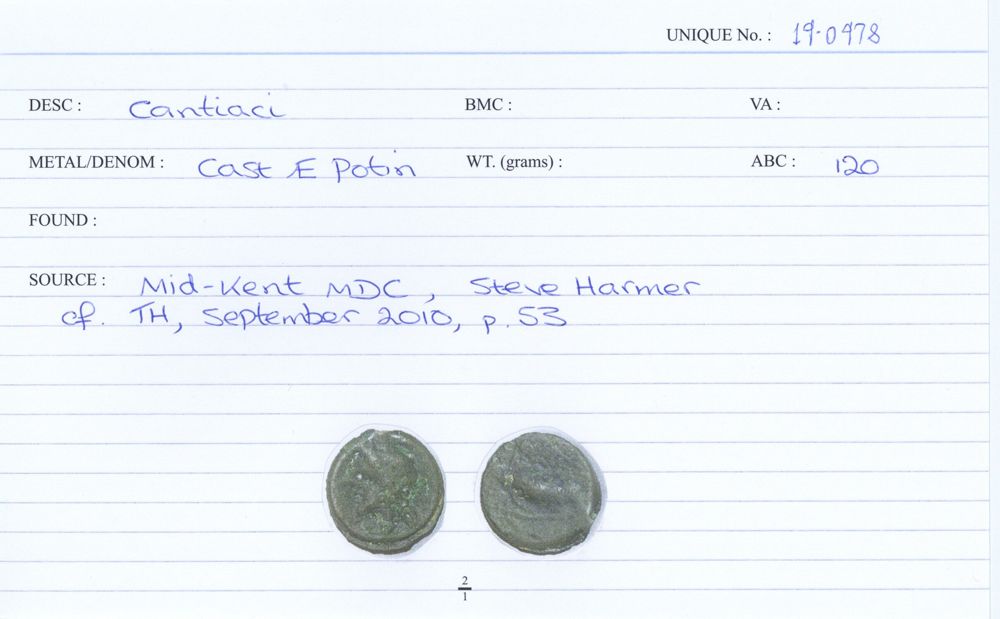 UNIQUE No. : 19-0978
DESC : Cantiaci BMC : VA :
METAL/DENOM : Cast Æ Potin WT. (grams) : ABC : 120
FOUND :
SOURCE : Mid-Kent MDC, Steve Harmer
cf. TH, September 2010, p. 53
2
1